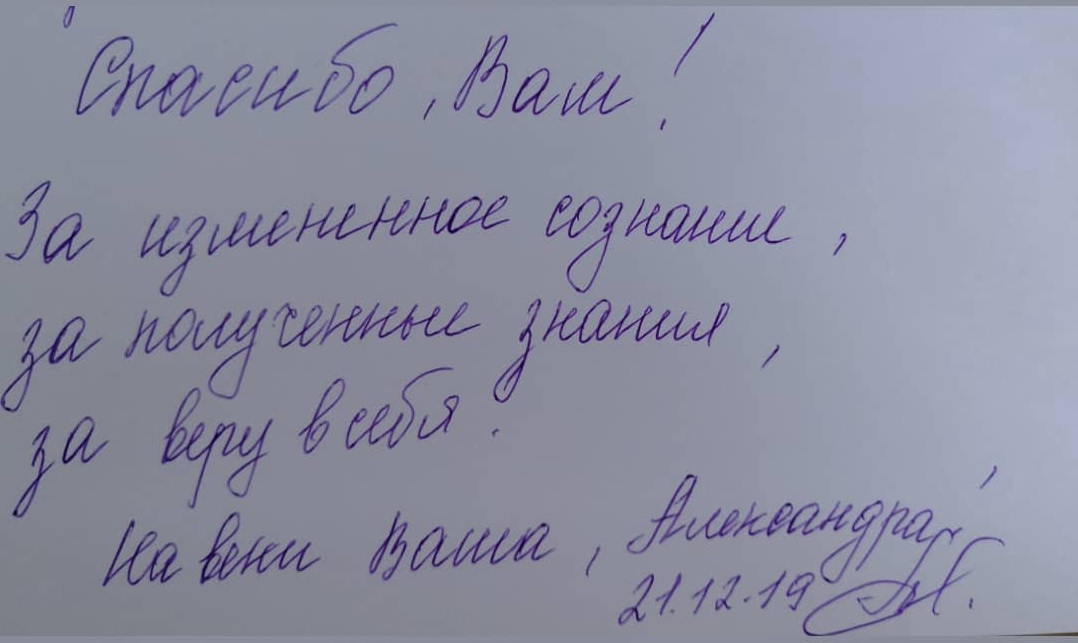 Спасибо, Вам!
За измененное сознание,
за полученные знания,
за веру в себя.
На веки Ваша, Александра
21.12.19